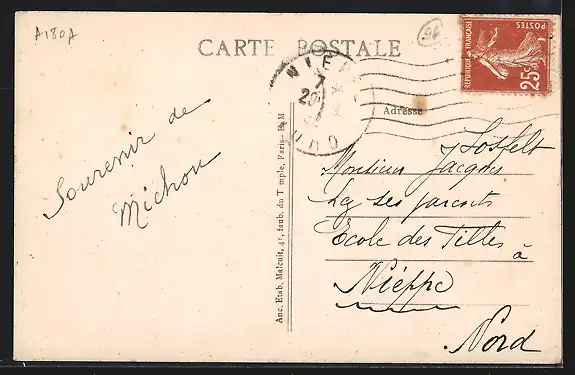 A180A
CARTE POSTALE
94
REPUBLIQUE FRANÇAISE
POSTES
25c
NIEPPE
NORD
Adresse
Souvenir de
Michou
Anc. Etab. Malcuit, 41, faub. du Temple, Paris - B M
Monsieur Jacques Losfelt
Chez ses parents
Ecole des Filles
à
Nieppe
Nord